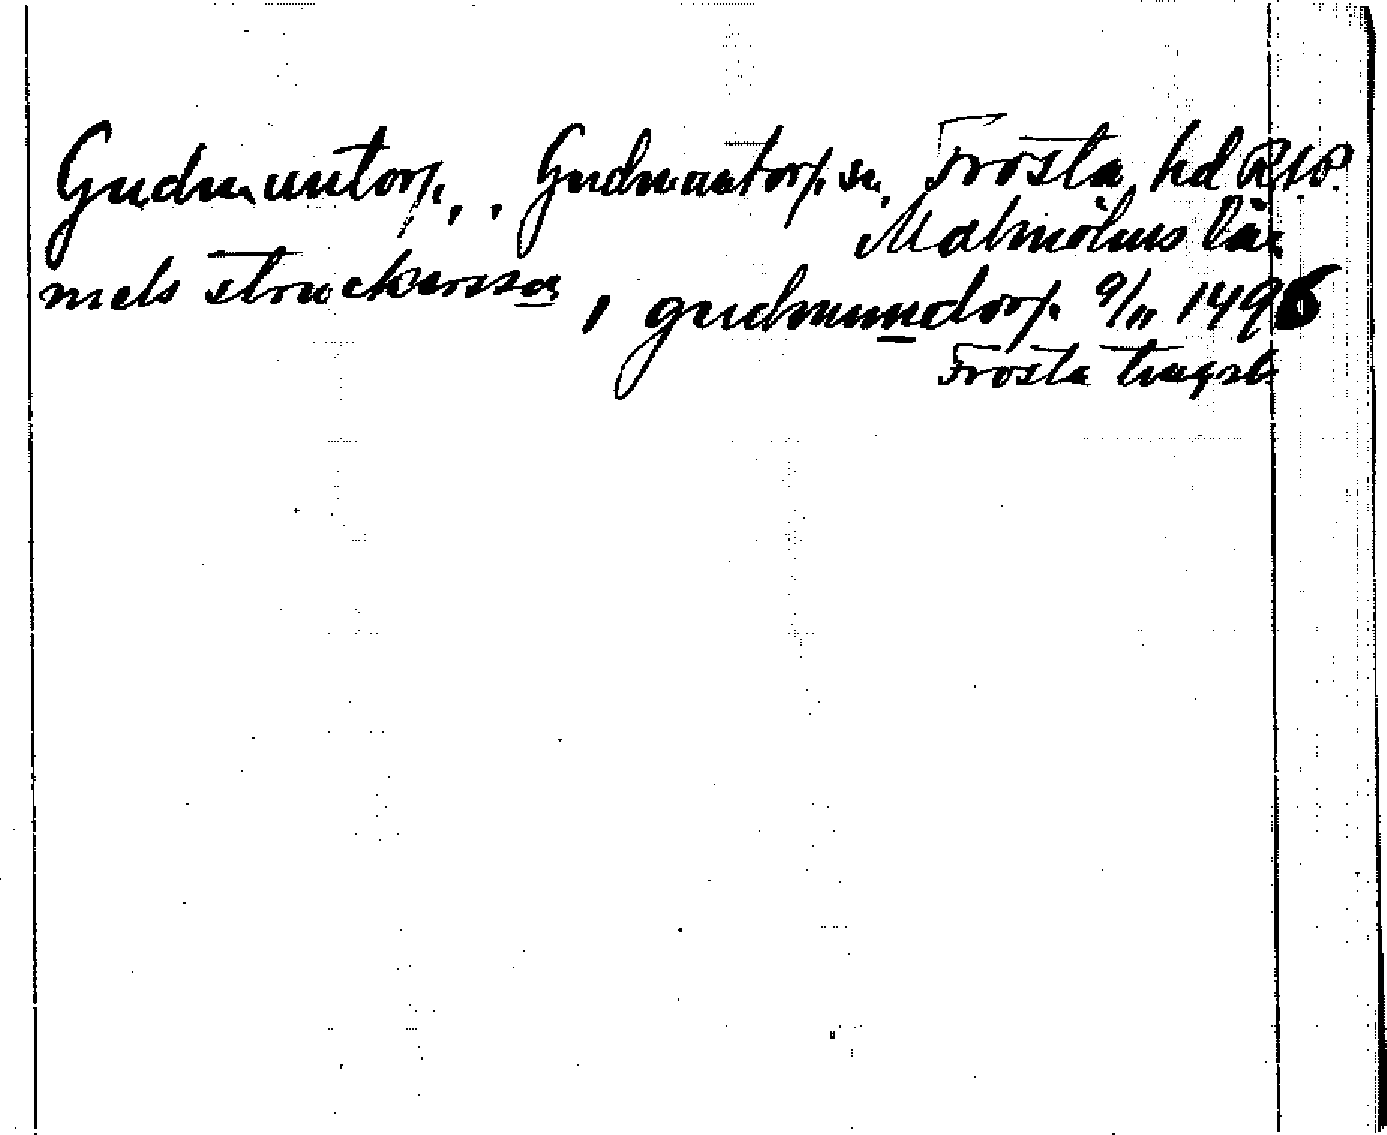 Gudmuntorp, , Gudmuntorp sn, Frosta hd
Malmöhus län
niels struckersson, gudmundorp. 9/11 1496
Frosta tingsb